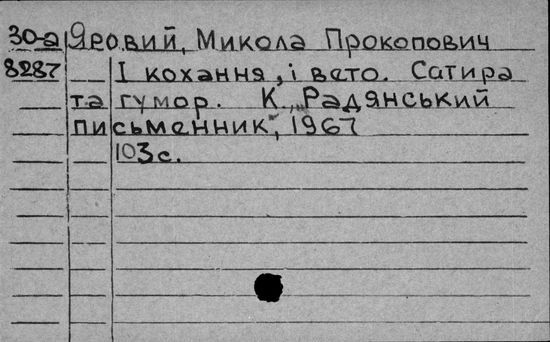 30-а Яровий, Микола Прокопович
8287 І кохання, і вето. Сатира
та гумор. К., Радянський
письменник, 1967
103с.